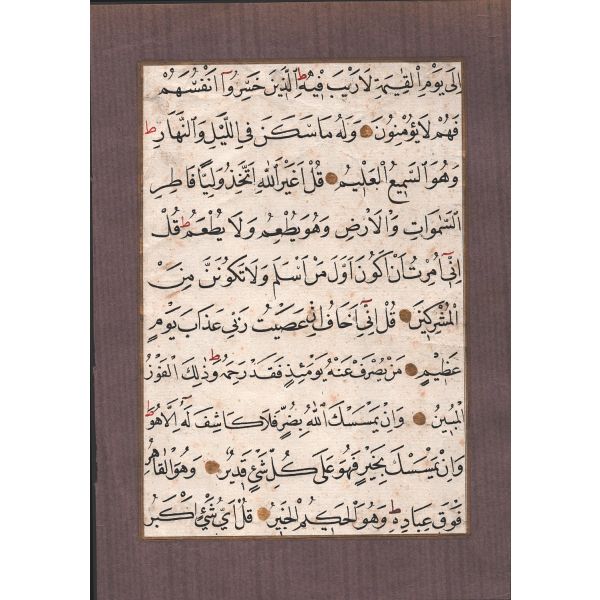 اِلٰى يَوْمِ الْقِيٰمَةِ لَا رَيْبَ فٖيهِ ط اَلَّذٖينَ خَسِرُوٓا اَنْفُسَهُمْ
فَهُمْ لَا يُؤْمِنُونَ وَلَهُ مَا سَكَنَ فِى الَّيْلِ وَالنَّهَارِ ط
وَهُوَ السَّمٖيعُ الْعَلٖيمُ قُلْ اَغَيْرَ اللّٰهِ اَتَّخِذُ وَلِيًّا فَاطِرِ
السَّمٰوَاتِ وَالْاَرْضِ وَهُوَ يُطْعِمُ وَلَا يُطْعَمُ ط قُلْ
اِنّٖىٓ اُمِرْتُ اَنْ اَكُونَ اَوَّلَ مَنْ اَسْلَمَ وَلَا تَكُونَنَّ مِنَ
الْمُشْرِكٖينَ قُلْ اِنّٖىٓ اَخَافُ اِنْ عَصَيْتُ رَبّٖى عَذَابَ يَوْمٍ
عَظٖيمٍ مَنْ يُصْرَفْ عَنْهُ يَوْمَئِذٍ فَقَدْ رَحِمَهُ ط وَذٰلِكَ الْفَوْزُ
الْمُبٖينُ وَاِنْ يَمْسَسْكَ اللّٰهُ بِضُرٍّ فَلَا كَاشِفَ لَهُٓ اِلَّا هُوَ ط
وَاِنْ يَمْسَسْكَ بِخَيْرٍ فَهُوَ عَلٰى كُلِّ شَىْءٍ قَدٖيرٌ وَهُوَ الْقَاهِرُ
فَوْقَ عِبَادِهٖ ط وَهُوَ الْحَكٖيمُ الْخَبٖيرُ قُلْ اَىُّ شَىْءٍ اَكْبَرُ